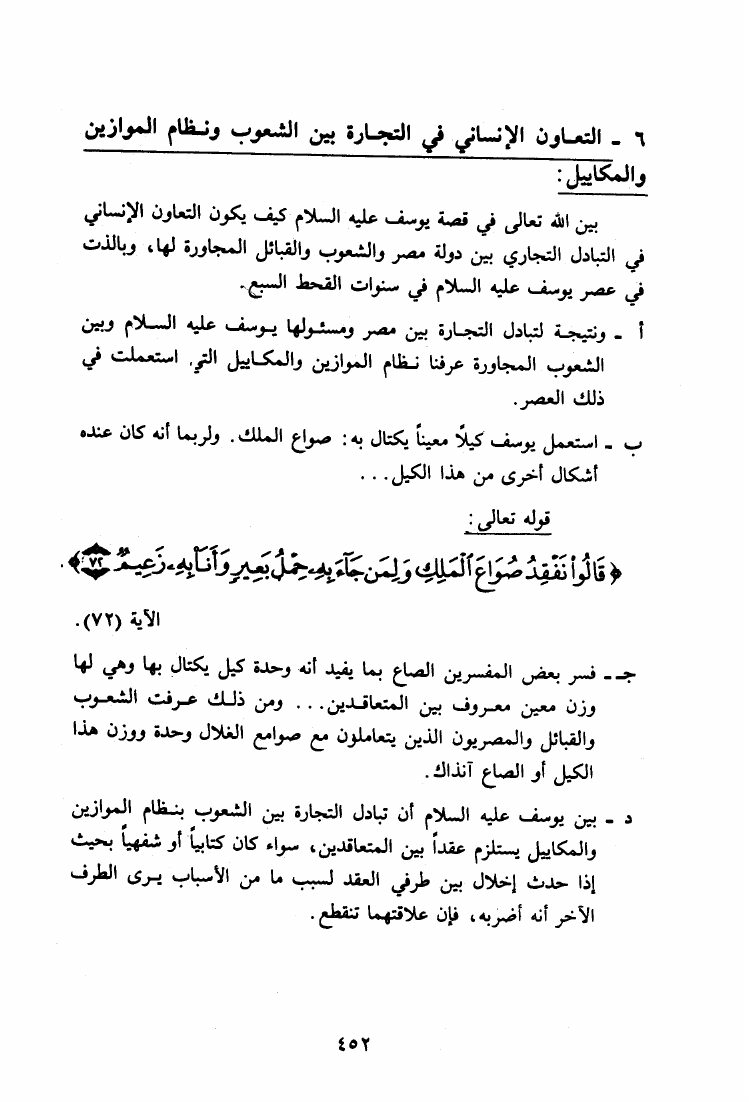 ٦ - التعـاون الإنساني في التجـارة بين الشعوب ونـظام الموازين
والمكاييل :
بين الله تعالى في قصة يوسف عليه السلام كيف يكون التعاون الإنساني
في التبادل التجاري بين دولة مصر والشعوب والقبائل المجاورة لها، وبالذت
في عصر يوسف عليه السلام في سنوات القحط السبع.
أ - ونتيجـة لتبادل التجـارة بين مصر ومسئـولها يـوسف عليه السـلام وبين
الشعوب المجاورة عرفنا نـظام الموازين والمكـاييل التي استعملت في
ذلك العصر.
ب - استعمل يوسف كيلاً معيناً يكتال به : صواع الملك. ولربما أنه كان عنده
أشكال أخرى من هذا الكيل...
قوله تعالى :
﴿ قَالُوا۟ نَفْقِدُ صُوَاعَ ٱلْمَلِكِ وَلِمَن جَآءَ بِهِۦ حِمْلُ بَعِيرٍ وَأَنَا۠ بِهِۦ زَعِيمٌ ٧٢ ﴾.
الآية (٧٢).
جـ - فسر بعض المفسرين الصاع بما يفيد أنه وحدة كيل يكتال بها وهي لها
وزن معين معـروف بين المتعاقـدين... ومن ذلـك عـرفت الشعـوب
والقبائل والمصريون الذين يتعاملون مع صوامع الغلال وحدة ووزن هذا
الكيل أو الصاع آنذاك.
د - بين يوسف عليه السلام أن تبادل التجارة بين الشعوب بنـظام الموازين
والمكاييل يستلزم عقداً بين المتعاقدين، سواء كان كتابياً أو شفهياً بحيث
إذا حدث إخلال بين طرفي العقد لسبب ما من الأسباب يـرى الطرف
الآخر أنه أضربه، فإن علاقتهما تنقطع.
٤٥٢